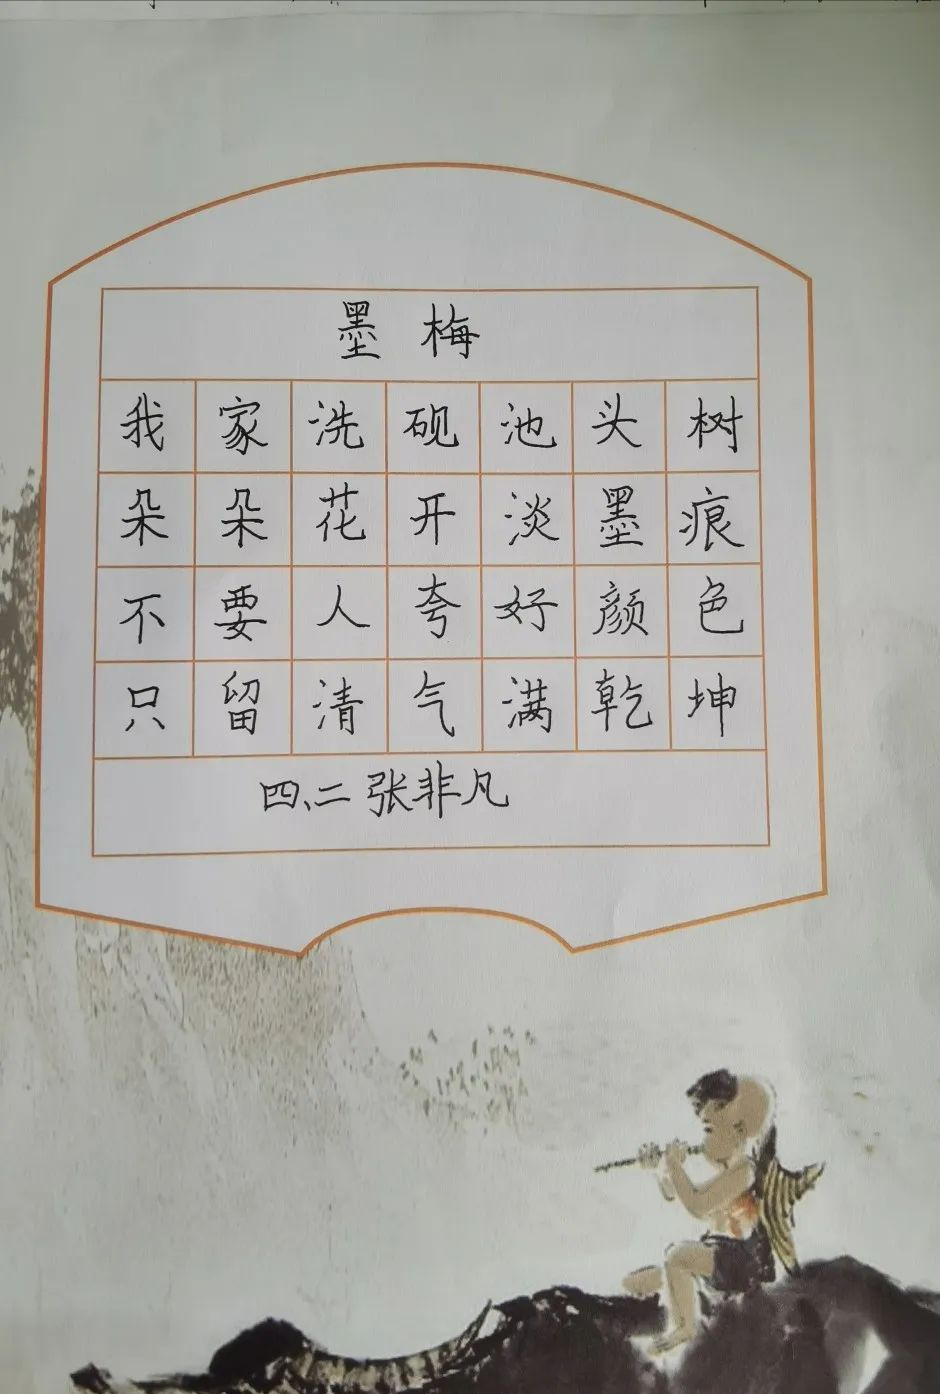 墨梅
我家洗砚池头树
朵朵花开淡墨痕
不要人夸好颜色
只留清气满乾坤
四、二张非凡